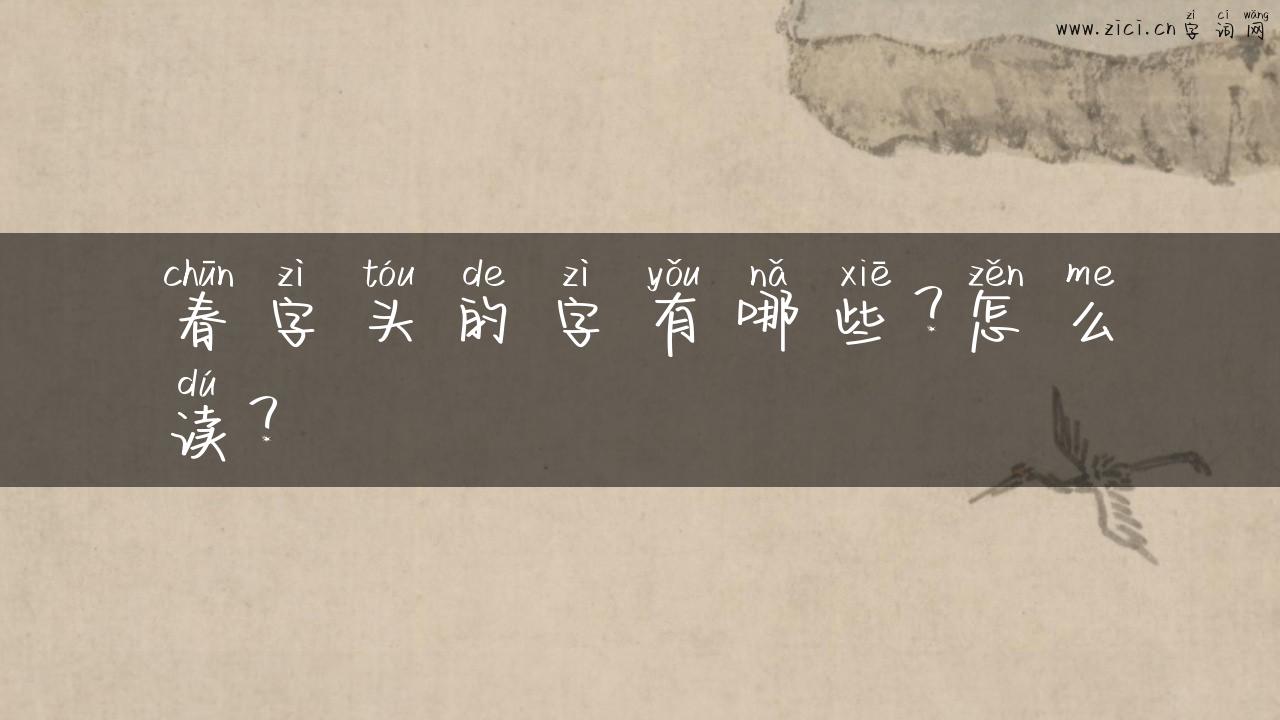 zì cí wǎng
www.zici.cn字词网
chūn zì tóu de zì yǒu nǎ xiē zěn me
春字头的字有哪些？怎么
dú
读？